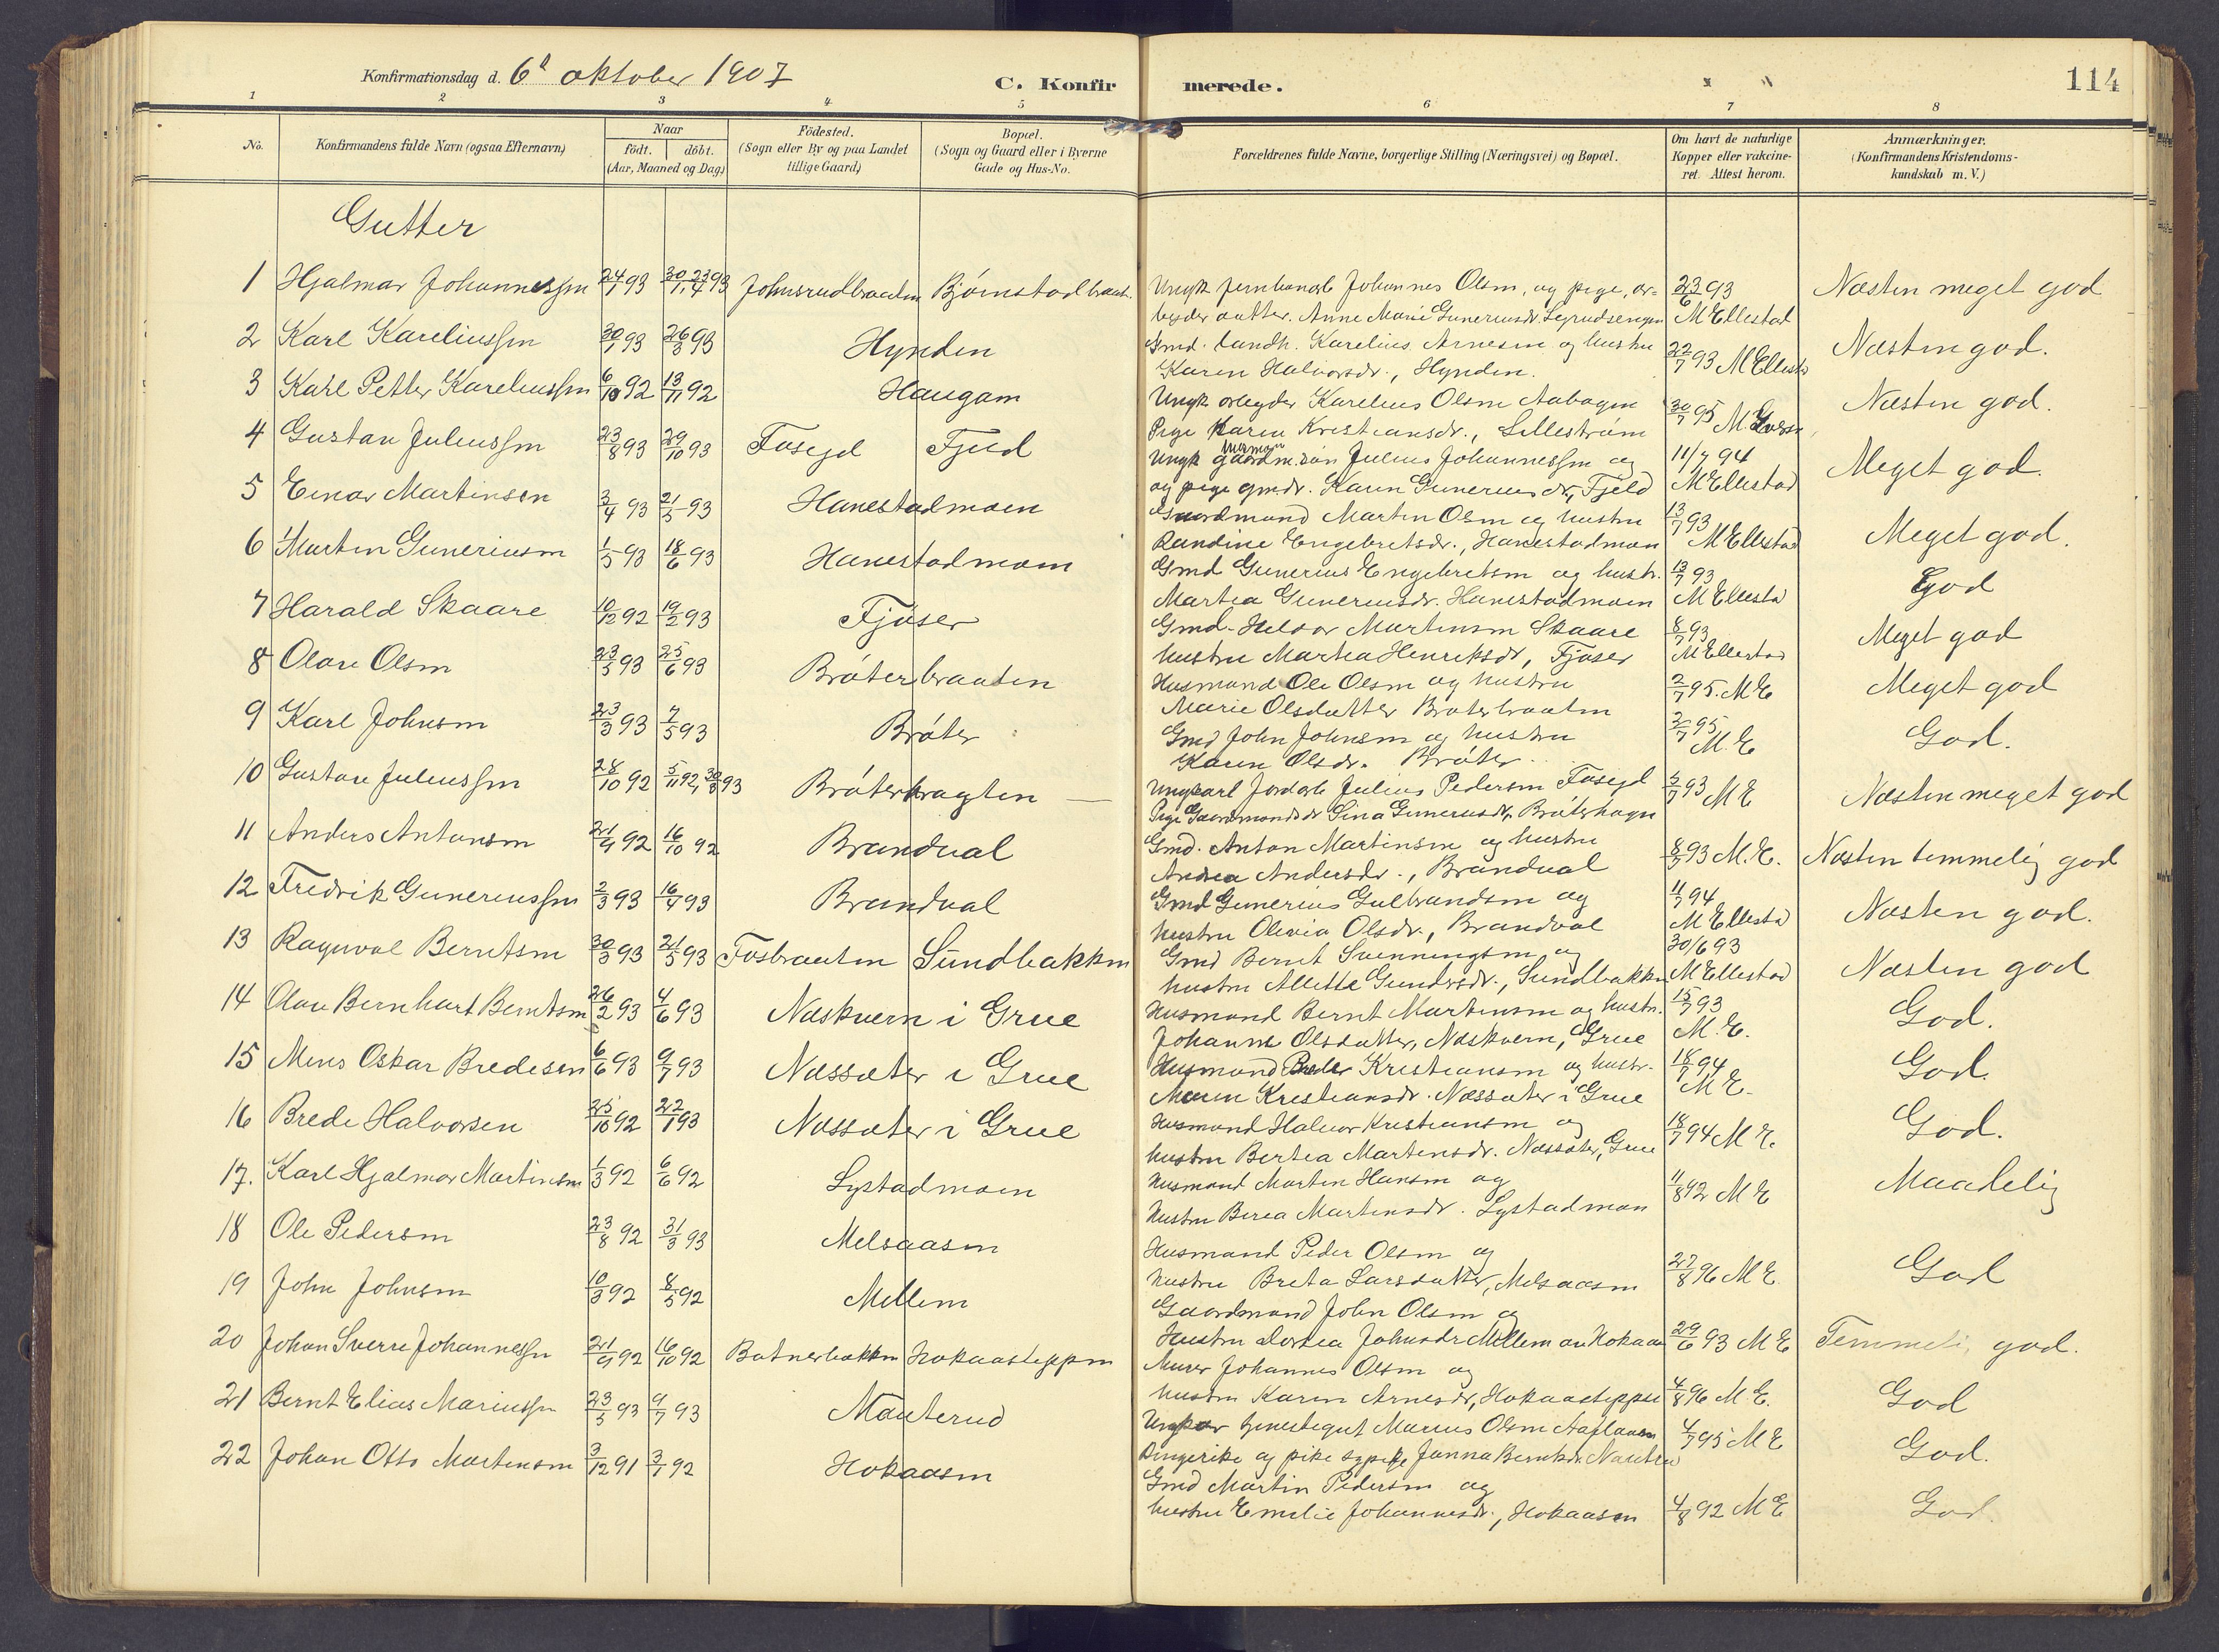 Konfirmationsdag d. 6te oktober 1907
C. Konfirmerede.
114
1 2 3 4 5 6 7 8
No.
Konfirmandens fulde Navn (ogsaa Efternavn)
Naar
födt. döbt.
(Aar, Maaned og Dag)
Födested.
(Sogn eller By og paa Landet
tillige Gaard)
Bopæl.
(Sogn og Gaard eller i Byerne
Gade og Hus-No.
Forældrenes fulde Navne, borgerlige Stilling (Næringsvei) og Bopæl.
Om havt de naturlige
Kopper eller vakcine-
ret. Attest herom.
Anmærkninger.
(Konfirmandens Kristendoms-
kundskab m. V.)
Gutter
1 Hjalmar Johannessen 24/1 93 30/1, 23/4 93 Johnsrudbraaten Bjørnstadbraat. Ungk. jernbanarb Johannes Olsen, og pige, ar-
beider datter. Anne Marie Guneriusdr. 23/6 93 M Ellestad Næsten meget god
2 Karl Kareliussen 30/1 93 26/3 93 Hynden Gmd. Karelius Arnesen og hustru
Karen Halvorsdr., Hynden. 22/7 93 M Ellestad Næsten god.
3 Karl Petter Kareliussen 6/10 92 13/11 92 Haugam Ungk arbeyder Karelius Olsen Aabogen
Pige Karen Kristiansdr., Lillestrøm 30/7 95 Næsten god.
4 Gustav Juliussen 23/8 93 29/10 93 Foseyd Fjeld Ungk gaardm.søn Julius Johannessen og
og pige gmdr. Karen Guneriusdr, Fjeld 11/7 94 M Ellestad Meget god.
5 Einar Martinsen 3/4 93 21/5 93 Hanestadmoen Gaardmand Martin Olsen og hustru
Randine Engebretsdr., Hanestadmoen 13/7 93 M Ellestad Meget god.
6 Martin Guneriusen 1/5 93 18/6 93 Hanestadmoen Gmd Gunerius Engebretsen og hustr.
Martea Gunerusdr. Hanestadmoen 13/7 93 M Ellestad God
7 Harald Skaare 10/12 92 19/2 93 Fjøser Gmd. Martinsen Skaare
hustru Martea Henriksdr, Fjøser 8/7 93 M Ellestad Meget god
8 Olav Olsen 23/5 93 25/6 93 Brøterbraaten Husmand Ole Olsen og hustru
Marie Olsdatter Brøterbraaten 2/7 95. M E Meget god
9 Karl Johnsen 23/3 93 7/5 93 Brøter Gmd John Johnsen og hustru
Karen Olsdr. Brøter 2/7 95 M. E God.
10 Gustav Juliussen 28/10 92 5/11 92, 30/3 93 Brøterhragten Ungkarl Jordarb Julius Pedersen Foseyd
Pige Gaardmandsdr Lina Gunerusdr, Brøterhagen 5/7 93 M E Næsten meget god
11 Anders Antonsen 21/9 92 16/10 92 Brandval Gmd. Anton Martinsen og hustru
Andrea Andersdr., Brandval 8/7 93 M. E. Næsten temmelig god
12 Fredrik Guneriussen 2/3 93 16/4 93 Brandval Gmd Gunerius Gulbrandsen og
hustru Olevia Olsdr., Brandval 11/7 94 M Ellestad Næsten god.
13 Ragnval Berntsen 30/3 93 21/5 93 Fosbraaten Sundbakken Gmd Bernt Svenningsen og
hustru Alette Gundersdr., Sundbakken 30/6 93 M Ellestad Næsten god
14 Olav Bernhart Berntsen 26/2 93 4/6 93 Næskvern i Grue Husmand Bernt Martinsen og hustr.
Johanne Olsdatter, Næskvern, Grue 15/7 93 M. E. God.
15 Mens Oskar Bredesen 6/6 93 9/7 93 Næssæter i Grue Husmand Brede Kristiansen og hustr.
Maren Kristiansdr. Næssæter i Grue 18/7 94 M E. God.
16 Brede Halvorsen 25/10 92 22/1 93 Næssæter i Grue Husmand Halvor Kristiansen og
hustru Bertea Martensdr. Næssæter, Grue 18/7 94 M E. God.
17. Karl Hjalmar Martinsen 1/3 92 6/6 92 Lystadmoen Husmand Morten Hansen og
Hustru Berea Martensdr. Lystadmoen 11/8 92 M E Maadelig
18 Ole Pedersen 23/8 92 31/3 93 Melsaasen Husmand Peder Olsen og
hustru Breta Larsdatter, Melsaasen 27/8 96 M E. God
19 John Johnsen 10/3 92 8/5 92 Mellem Gaardmand John Olsen og
Hustru Dortea Johnsdr Mellem 29/6 93 M E Temmeli god.
20 Johan Sverre Johannessen 21/9 92 16/10 92 Botnerbakken Hokaasteppen Murer Johannes Olsen og
hustru Karen Arnesdr, Hokaasteppen 4/8 96 M. E. God
21 Bernt Elias Mariussen 23/5 93 9/7 93 Nauterud Ungkar tjenestegut Marius Olsen
Ringerike og pike Janna Berntsdr. 4/7 95 M E God.
22 Johan Otto Martensen 3/12 91 3/1 92 Hokaasen Gmd Martin Pedersen og
hustru Emelie Johannesdr., Hokaasen 4/8 92 M E God.